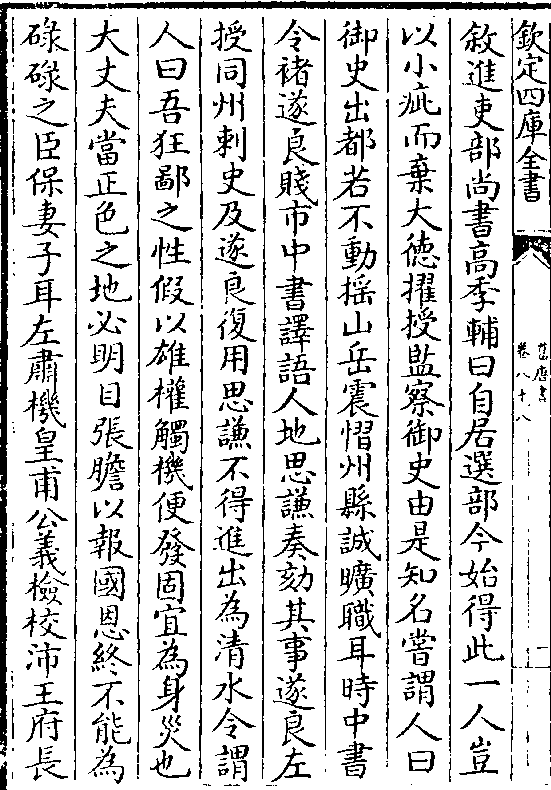 欽定四庫全書
舊唐書
卷八十八
二
敘進吏部尚書高季輔曰自居選部今始得此一人豈
以小疵而棄大德擢授監察御史由是知名嘗謂人曰
御史出都若不動揺山岳震慴州縣誠曠職耳時中書
令褚遂良賤市中書譯語人地思謙奏劾其事遂良左
授同州刺史及遂良復用思謙不得進出為清水令謂
人曰吾狂鄙之性假以雄權觸機便發固宜為身災也
大丈夫當正色之地必明目張膽以報國恩終不能為
碌碌之臣保妻子耳左肅機皇甫公義檢校沛王府長